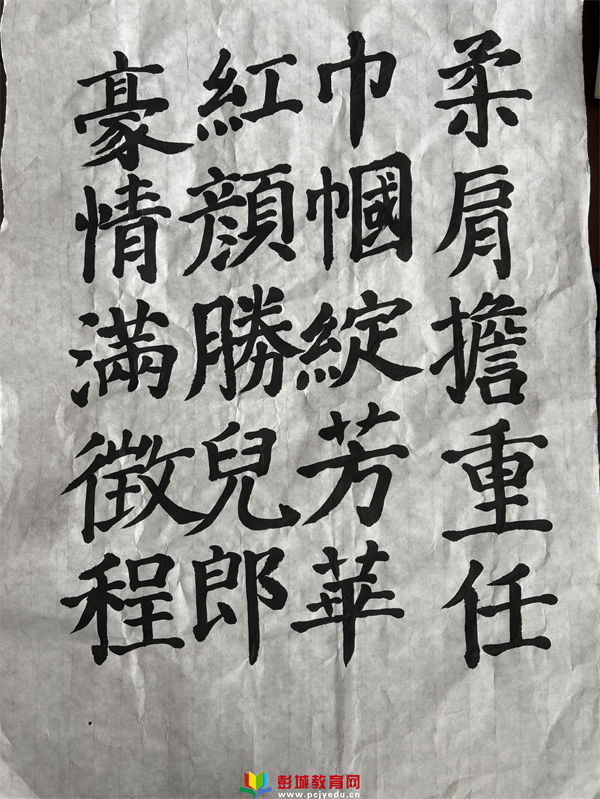 柔肩擔重任
巾幗綻芳華
紅顔勝兒郎
豪情滿徵程
彭城教育网
www.pcjyedu.cn